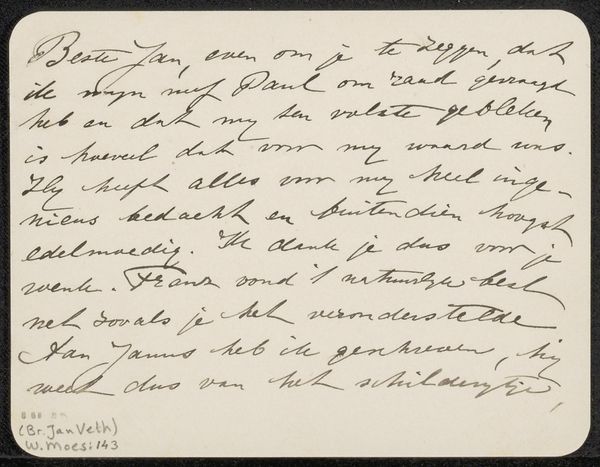 Beste Jan, even om je te zeggen, dat
ik mijn neef Paul om raad gevraagd
heb en dat my ten volste gebleken
is hoeveel dat voor my waard was.
Hy heeft alles voor my heel inge-
nieus bedacht en buitendien hoogst
edelmoedig. Ik dank je dus voor je
wenk. Franz vond 't natuurlyk best
net zooals je het veronderstelde
Aan Janus heb ik geschreven, hij
weet dus van het schilderytje,
(Br. Jan Veth)
W. Moes: 143